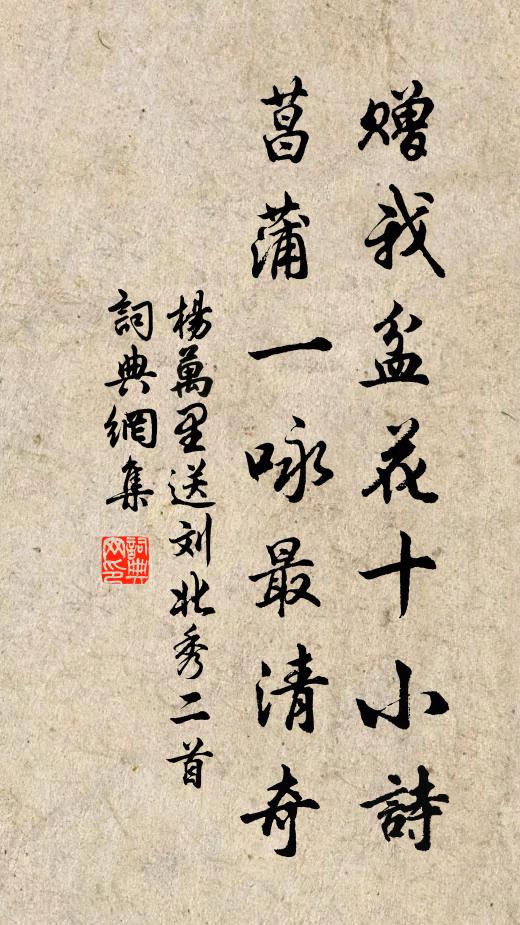 赠我盆花十小詩
菖蒲一咏最清奇
楊萬里送刘北秀二首
詞典網集
詞典
网印